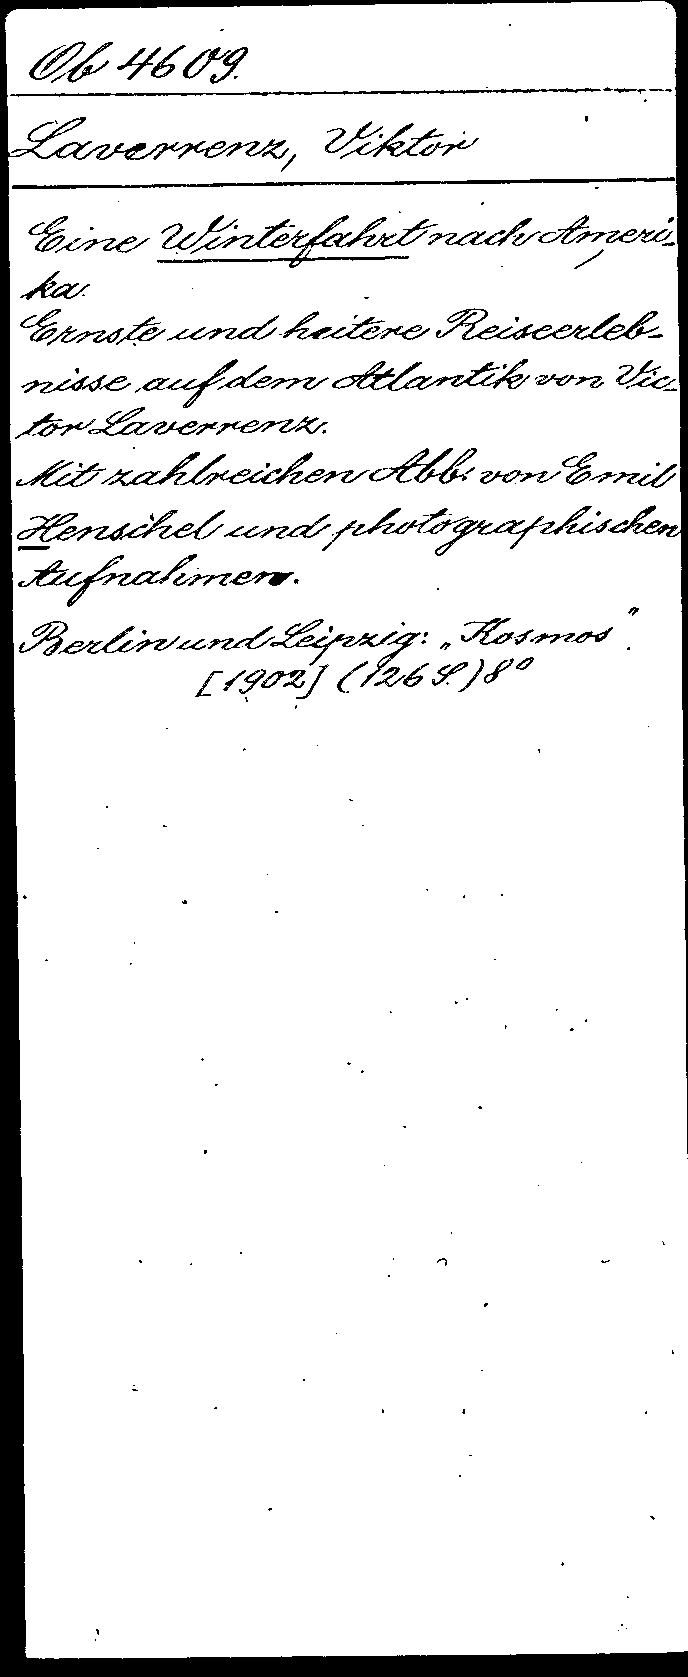 Ob 4609.
Laverrenz, Viktor
Eine Winterfahrt nach Ameri-
ka.
Ernste und heitere Reiseerleb-
nisse auf dem Atlantik von Vic-
tor Laverrenz.
Mit zahlreichen Abb. von Emil
Henschel und photographischen
Aufnahmen.
Berlin und Leipzig: „Kosmos".
[1902] (126 S.) 8°